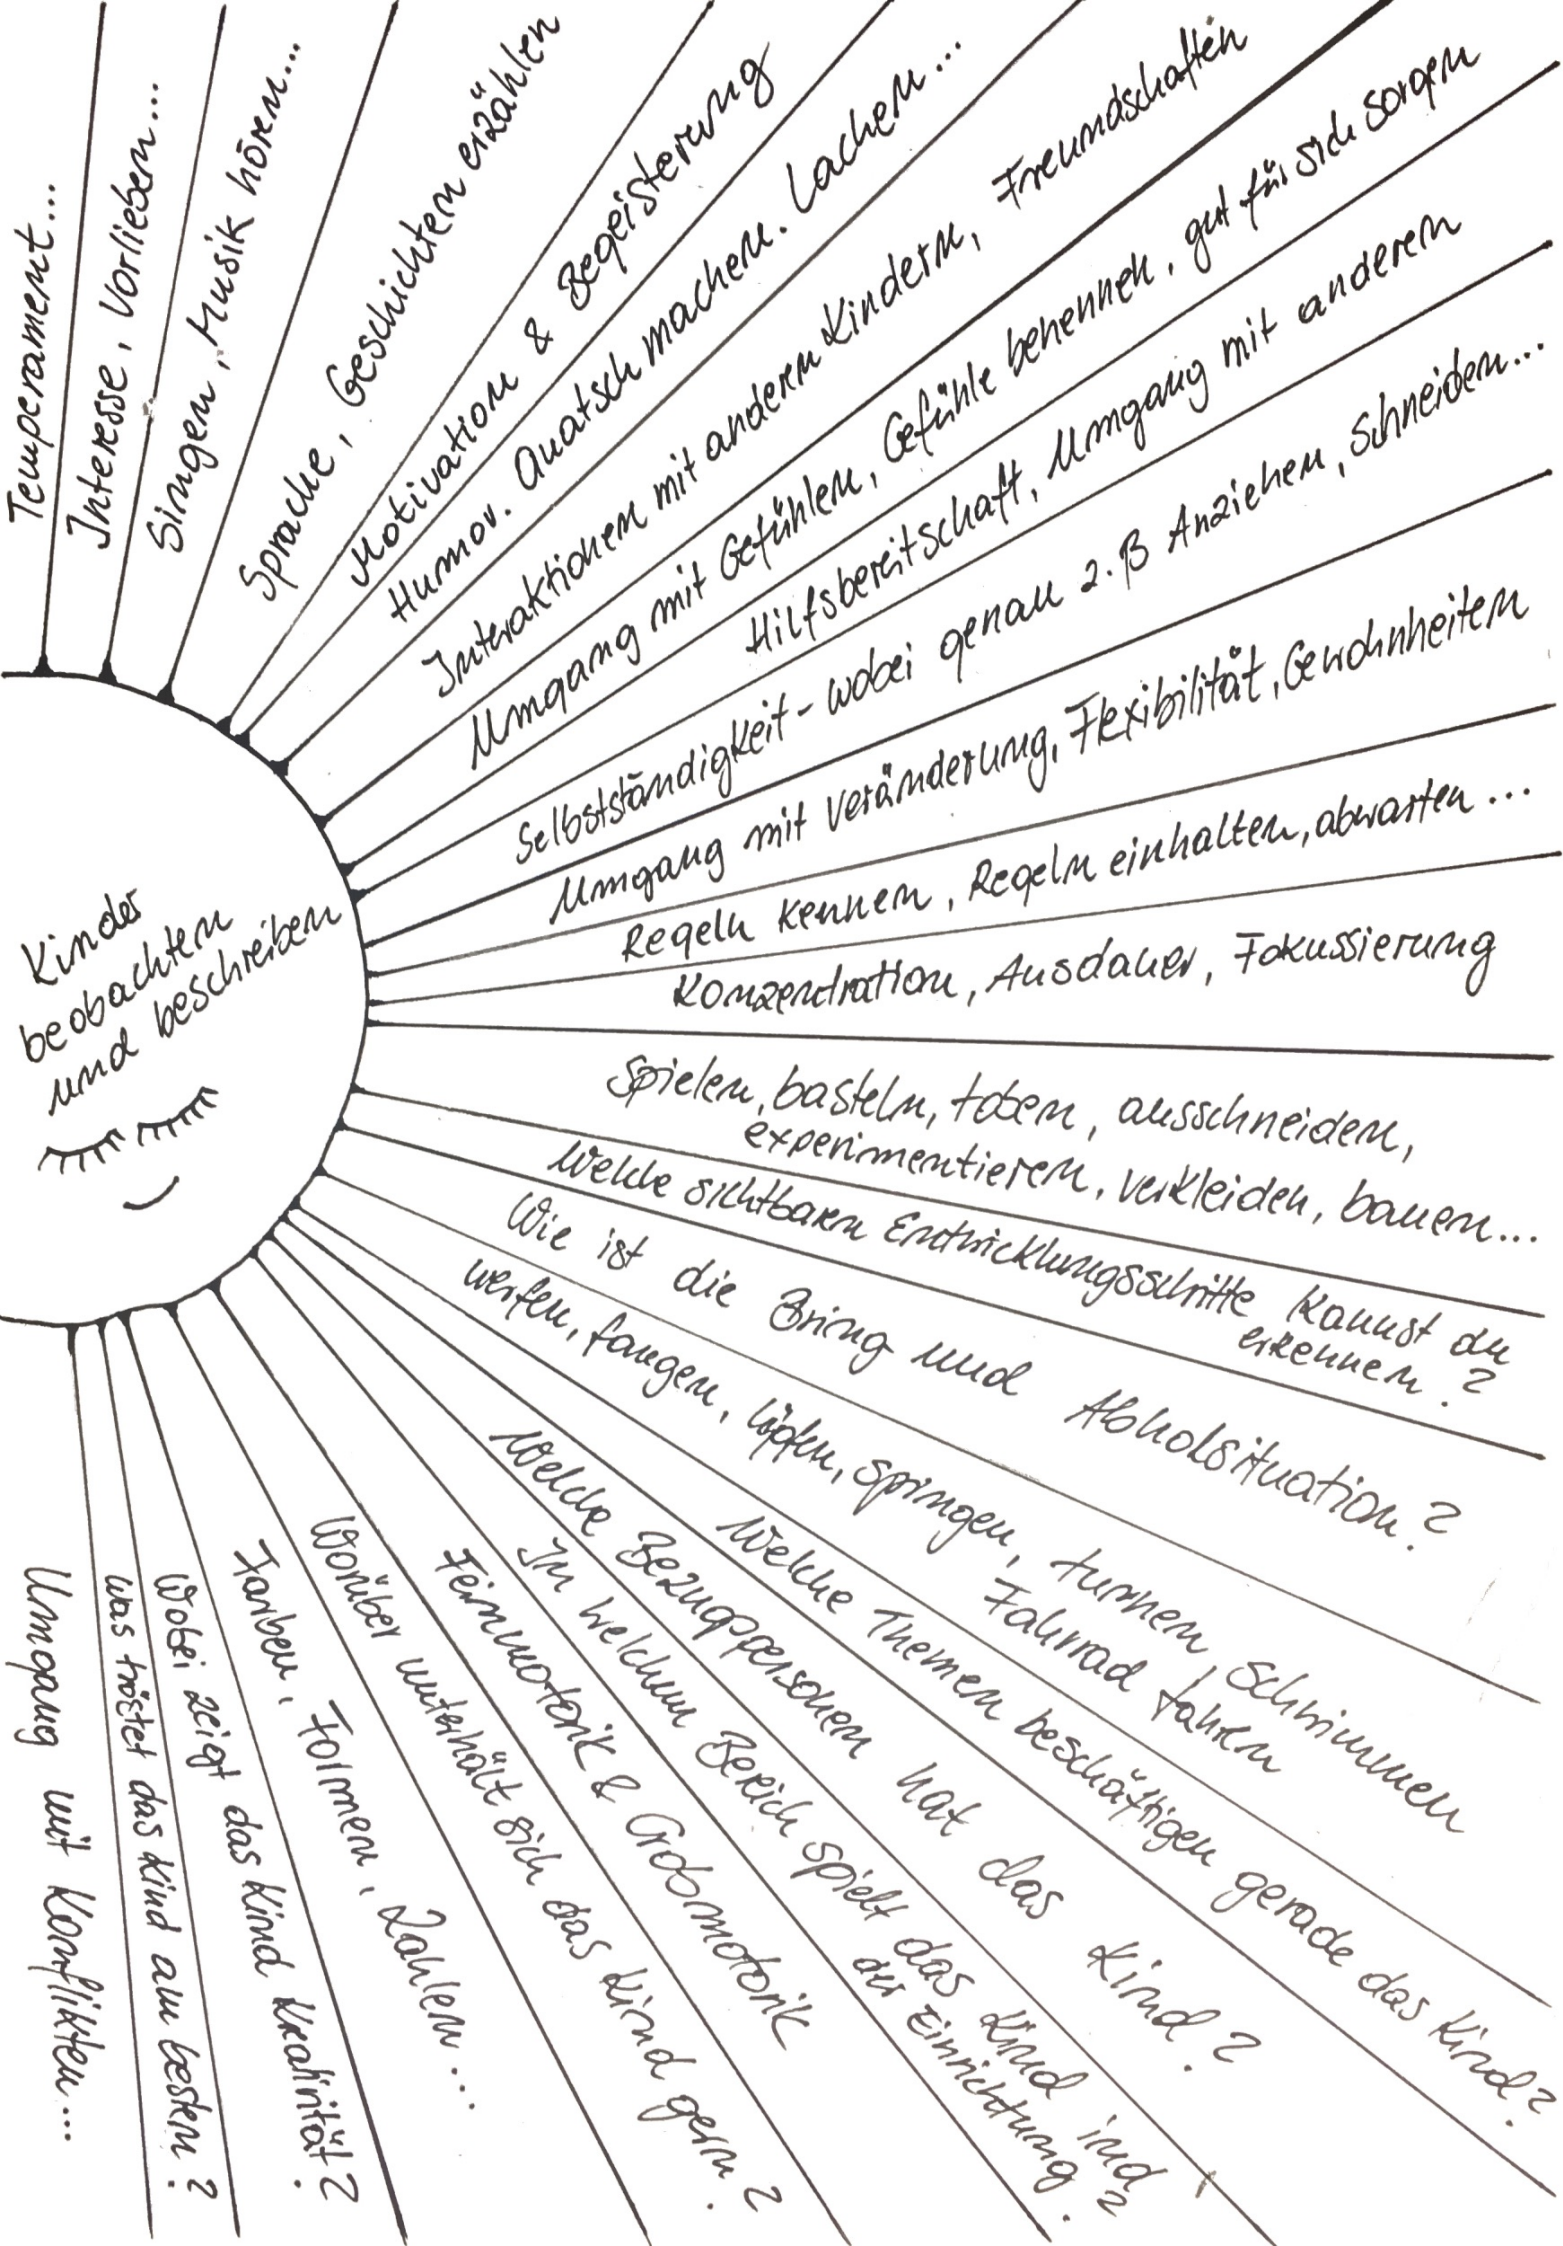 Temperament...
Interesse, Vorlieben...
Singen, Musik hören...
Sprache, Geschichten erzählen
Motivation & Begeisterung
Humor. Quatsch machen. Lachen...
Interaktionen mit anderen Kindern, Freundschaften
Umgang mit Gefühlen, Gefühle benennen, gut für sich sorgen
Hilfsbereitschaft, Umgang mit anderen
Selbstständigkeit - wobei genau z.B Anziehen, Schneiden...
Umgang mit Veränderung, Flexibilität, Gewohnheiten
Regeln kennen, Regeln einhalten, abwarten...
Konzentration, Ausdauer, Fokussierung
Kinder
beobachten
und beschreiben
Spielen, basteln, toben, ausschneiden,
experimentieren, verkleiden, bauen...
Welche sichtbaren Entwicklungsschritte kannst du
erkennen?
Wie ist die Bring und Abholsituation?
werfen, fangen, hüpfen, springen, turnen, schwimmen
Fahrrad fahren
Welche Themen beschäftigen gerade das Kind?
Welche Bezugspersonen hat das Kind?
In welchem Bereich spielt das Kind ind
der Einrichtung?
Feinmotorik & Grobmotorik
Worüber unterhält sich das Kind gern?
Farben, Formen, Zahlen...
Wobei zeigt das Kind Kreativität?
Was tröstet das Kind am besten?
Umgang mit Konflikten...